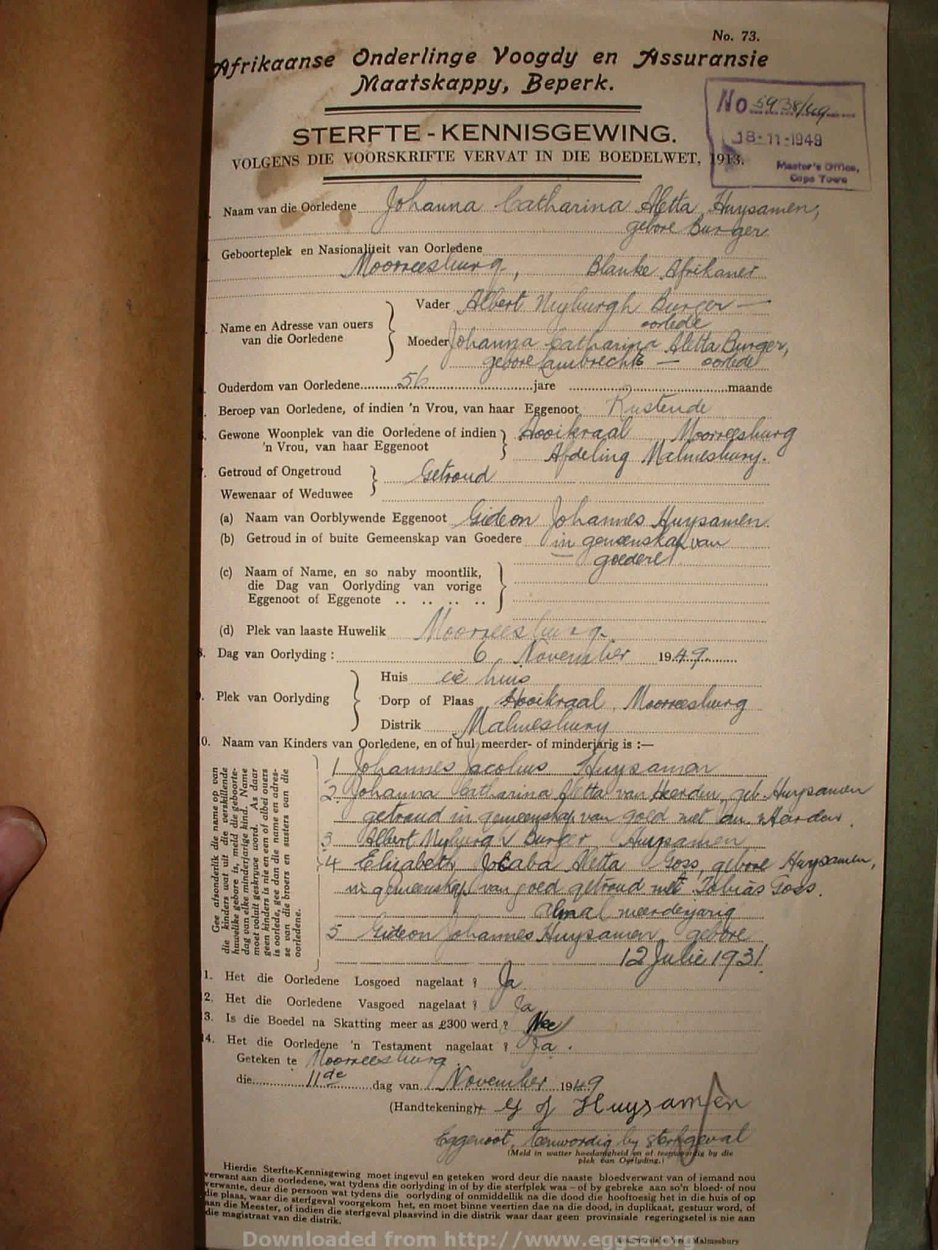 No. 73.
Afrikaanse Onderlinge Voogdy en Assuransie
Maatskappy, Beperk.
No 5938/49
18-11-1949
Master's Office,
Cape Town
STERFTE - KENNISGEWING.
VOLGENS DIE VOORSKRIFTE VERVAT IN DIE BOEDELWET, 1913.
Naam van die Oorledene Johanna Catharina Aletta Huysamen,
gebore Burger
Geboorteplek en Nasionaliteit van Oorledene
Moorreesburg, Blanke Afrikaner
Name en Adresse van ouers van die Oorledene
Vader Albert Nyburgh Burger —
oorlede
Moeder Johanna Catharina Aletta Burger,
gebore Lambrechts — oorlede
Ouderdom van Oorledene 56 jare maande
Beroep van Oorledene, of indien 'n Vrou, van haar Eggenoot Rustende
6. Gewone Woonplek van die Oorledene of indien Hooikraal Moorreesburg
'n Vrou, van haar Eggenoot Afdeling Malmesbury.
7. Getroud of Ongetroud Getroud
Wewenaar of Weduwee
(a) Naam van Oorblywende Eggenoot Gideon Johannes Huysamen
(b) Getroud in of buite Gemeenskap van Goedere in gemeenskap van
goedere
(c) Naam of Name, en so naby moontlik,
die Dag van Oorlyding van vorige
Eggenoot of Eggenote .. .. .. ..
(d) Plek van laaste Huwelik Moorreesburg.
8. Dag van Oorlyding : 6 November 1949
9. Plek van Oorlyding
Huis eie huis
Dorp of Plaas Hooikraal, Moorreesburg
Distrik Malmesbury
0. Naam van Kinders van Oorledene, en of hul meerder- of minderjarig is :—
Gee afsonderlik die name op van
die kinders wat uit die verskillende
huwelike gebore is, meld die geboorte-
dag van elke minderjarige kind. Name
moet voluit geskrywe word. As daar
geen kinders is nie en een of albei ouers
is oorlede, gee dan die name en adres-
se van die broers en susters van die
oorledene.
1. Johannes Jacobus Huysamen
2. Johanna Catharina Aletta van Heerden, geb. Huysamen
getroud in gemeenskap van goed met
3 Albert Nyburgh Burger Huysamen
4 Elizabeth Jacaba Aletta Goss, gebore Huysamen,
in gemeenskap van goed getroud met Tobias Goss.
Almal meerderjarig
5 Gideon Johannes Huysamen, gebore
12 Julie 1931.
1. Het die Oorledene Losgoed nagelaat ? Ja
12. Het die Oorledene Vasgoed nagelaat ? Ja
13. Is die Boedel na Skatting meer as £300 werd ? Nee
14. Het die Oorledene 'n Testament nagelaat ? Ja.
Geteken te Moorreesburg
die 11de dag van November 1949
(Handtekening) G J Huysamen
Eggenoot, teenwordig by sterfgeval
(Meld in watter hoedanigheid en of teenwoordig by die
plek van Oorlyding.)
Hierdie Sterfte-Kennisgewing moet ingevul en geteken word deur die naaste bloedverwant van of iemand nou
verwant aan die oorledene, wat tydens die oorlyding in of by die sterfplek was - of by gebreke aan so'n bloed- of nou
verwante, deur die persoon wat tydens die oorlyding of onmiddellik na die dood die hooftoesig het in die huis of op
die plaas, waar die sterfgeval voorgekom het, en moet binne veertien dae na die dood, in duplikaat, gestuur word, of
aan die Meester, of indien die sterfgeval plaasvind in die distrik waar daar geen provinsiale regeringsetel is nie aan
die magistraat van die distrik.
Malmesbury
Downloaded from http://www.eggsa.org